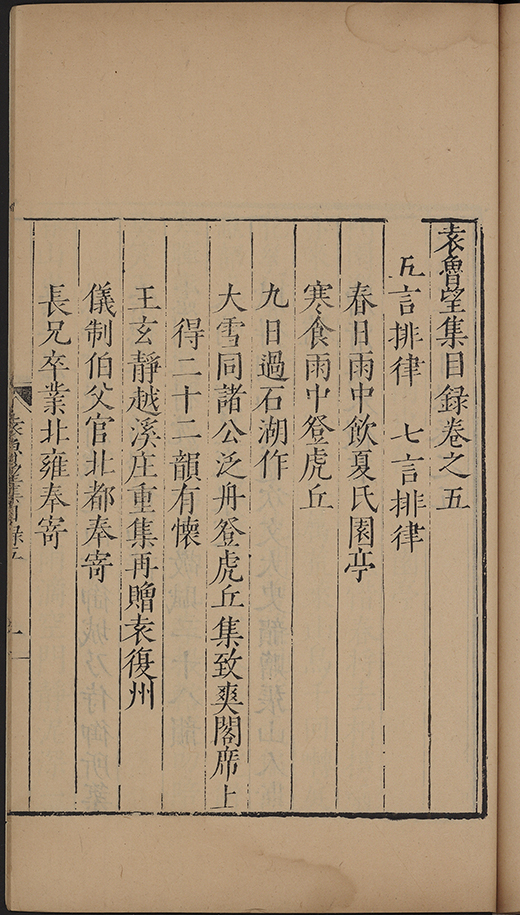 袁魯望集目録卷之五
五言排律　七言排律
春日雨中飲夏氏園亭
寒食雨中登虎丘
九日過石湖作
大雪同諸公泛舟登虎丘集致爽閣席上
得二十二韻有懷
王玄靜越溪庄重集再贈袁復州
儀制伯父官北都奉寄
長兄卒業北雍奉寄